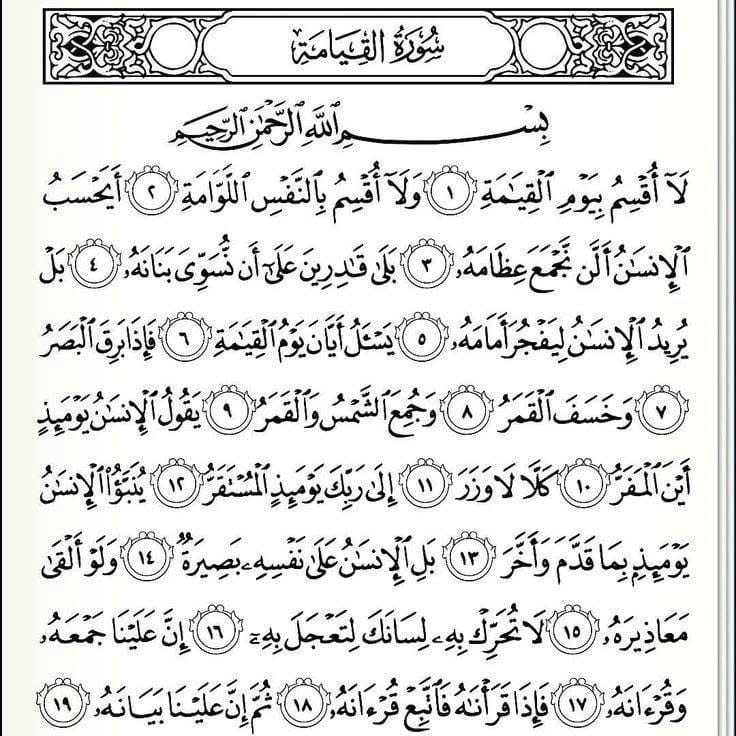 سُورَةُ الْقِيَامَةِ
بِسْمِ ٱللَّهِ ٱلرَّحْمَٰنِ ٱلرَّحِيمِ
لَآ أُقْسِمُ بِيَوْمِ ٱلْقِيَٰمَةِ ١ وَلَآ أُقْسِمُ بِٱلنَّفْسِ ٱللَّوَّامَةِ ٢ أَيَحْسَبُ
ٱلْإِنسَٰنُ أَلَّن نَّجْمَعَ عِظَامَهُۥ ٣ بَلَىٰ قَٰدِرِينَ عَلَىٰٓ أَن نُّسَوِّىَ بَنَانَهُۥ ٤ بَلْ
يُرِيدُ ٱلْإِنسَٰنُ لِيَفْجُرَ أَمَامَهُۥ ٥ يَسْـَٔلُ أَيَّانَ يَوْمُ ٱلْقِيَٰمَةِ ٦ فَإِذَا بَرِقَ ٱلْبَصَرُ
٧ وَخَسَفَ ٱلْقَمَرُ ٨ وَجُمِعَ ٱلشَّمْسُ وَٱلْقَمَرُ ٩ يَقُولُ ٱلْإِنسَٰنُ يَوْمَئِذٍ
أَيْنَ ٱلْمَفَرُّ ١٠ كَلَّا لَا وَزَرَ ١١ إِلَىٰ رَبِّكَ يَوْمَئِذٍ ٱلْمُسْتَقَرُّ ١٢ يُنَبَّؤُا۟ ٱلْإِنسَٰنُ
يَوْمَئِذٍۭ بِمَا قَدَّمَ وَأَخَّرَ ١٣ بَلِ ٱلْإِنسَٰنُ عَلَىٰ نَفْسِهِۦ بَصِيرَةٌ ١٤ وَلَوْ أَلْقَىٰ
مَعَاذِيرَهُۥ ١٥ لَا تُحَرِّكْ بِهِۦ لِسَانَكَ لِتَعْجَلَ بِهِۦٓ ١٦ إِنَّ عَلَيْنَا جَمْعَهُۥ
وَقُرْءَانَهُۥ ١٧ فَإِذَا قَرَأْنَٰهُ فَٱتَّبِعْ قُرْءَانَهُۥ ١٨ ثُمَّ إِنَّ عَلَيْنَا بَيَانَهُۥ ١٩